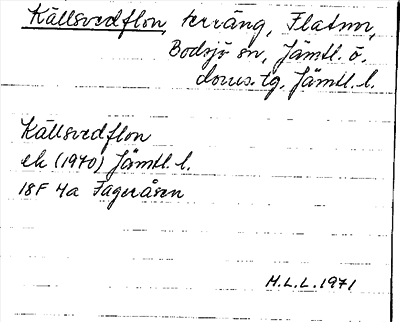 Källsvedflon, terräng, Flatnor,
Bodsjö sn, Jämtl. ö.
doms.tg, Jämtl. l.
Källsvedflon
ek (1970) Jämtl. l.
18F 4a Fageråsen
H.L.L. 1971